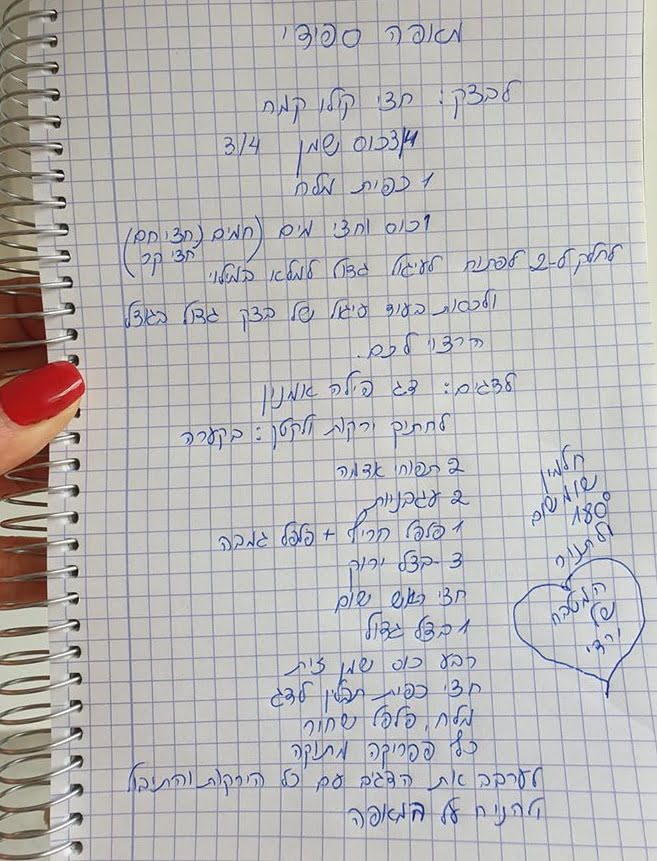 מאפה ספידי
לבצק: חצי קילו קמח
3/4 כוס שמן 3/4
1 כפית מלח
1 כוס וחצי מים (חמים (חצי חם)
חצי קר)
לחלק ל-2 לפתוח לעיגול גדול למלא במילוי
ולכסות בעוד עיגול של בצק גדול בגודל
הרצוי לכם.
לדגים: דג פילה אמנון
לחתוך ירקות ולקטן: בקערה
2 תפוחי אדמה
2 עגבניות
1 פלפל חריף + פלפל גמבה
3 - בצל ירוק
חצי ראש שום
1 בצל גדול
רבע כוס שמן זית
חצי כפית תבלין לדג
מלח, פלפל שחור
כף פפריקה מתוקה
לערבב את הדגים עם כל הירקות והתיבול
ולהניח על המאפה
חלמון
שומשום
180°
לתנור
המטבח
של
ירדי